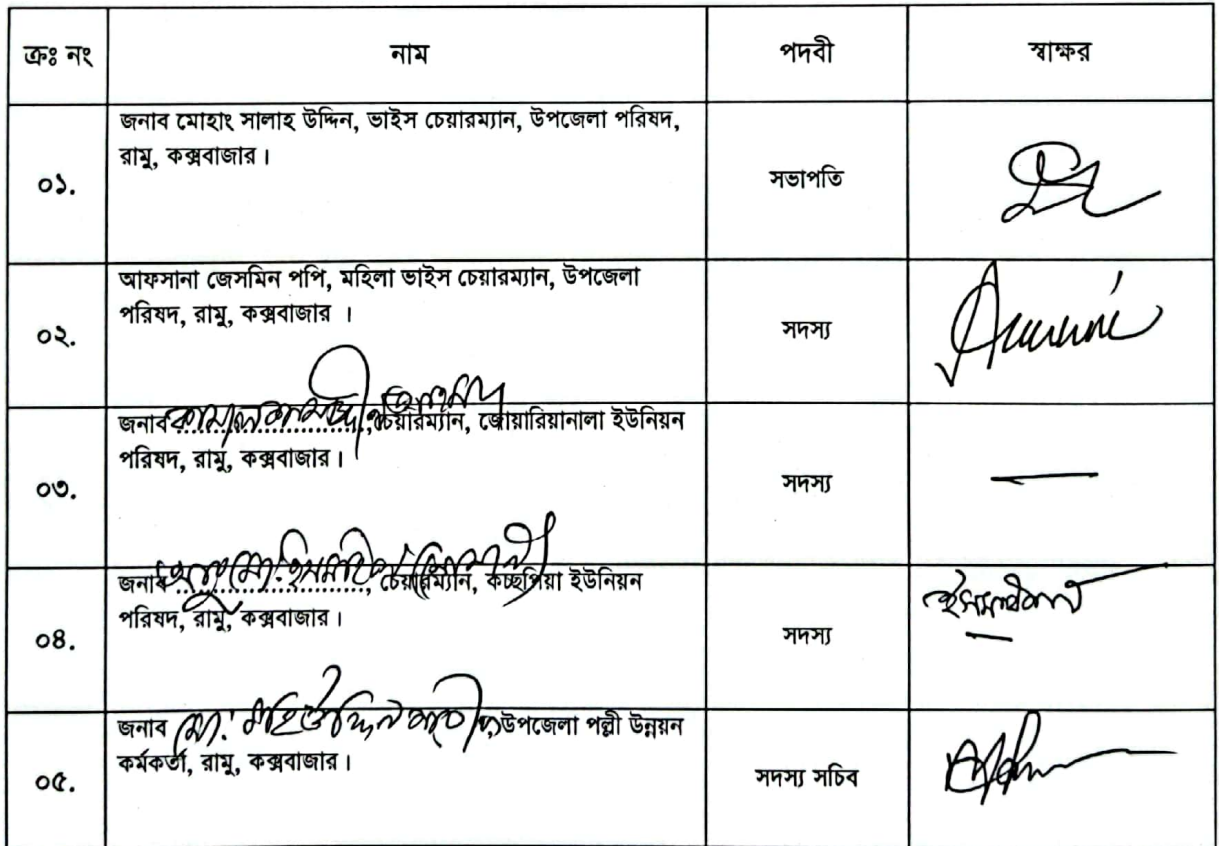 ক্রঃ নং	নাম	পদবী	স্বাক্ষর
০১.	জনাব মোহাং সালাহ উদ্দিন, ভাইস চেয়ারম্যান, উপজেলা পরিষদ,
রামু, কক্সবাজার।	সভাপতি
০২.	আফসানা জেসমিন পপি, মহিলা ভাইস চেয়ারম্যান, উপজেলা
পরিষদ, রামু, কক্সবাজার ।	সদস্য
০৩.	জনাব ...................., চেয়ারম্যান, জোয়ারিয়ানালা ইউনিয়ন
পরিষদ, রামু, কক্সবাজার।	সদস্য
০৪.	জনাব ...................., চেয়ারম্যান, কচ্ছপিয়া ইউনিয়ন
পরিষদ, রামু, কক্সবাজার।	সদস্য
০৫.	জনাব মো: উপজেলা পল্লী উন্নয়ন
কর্মকর্তা, রামু, কক্সবাজার।	সদস্য সচিব